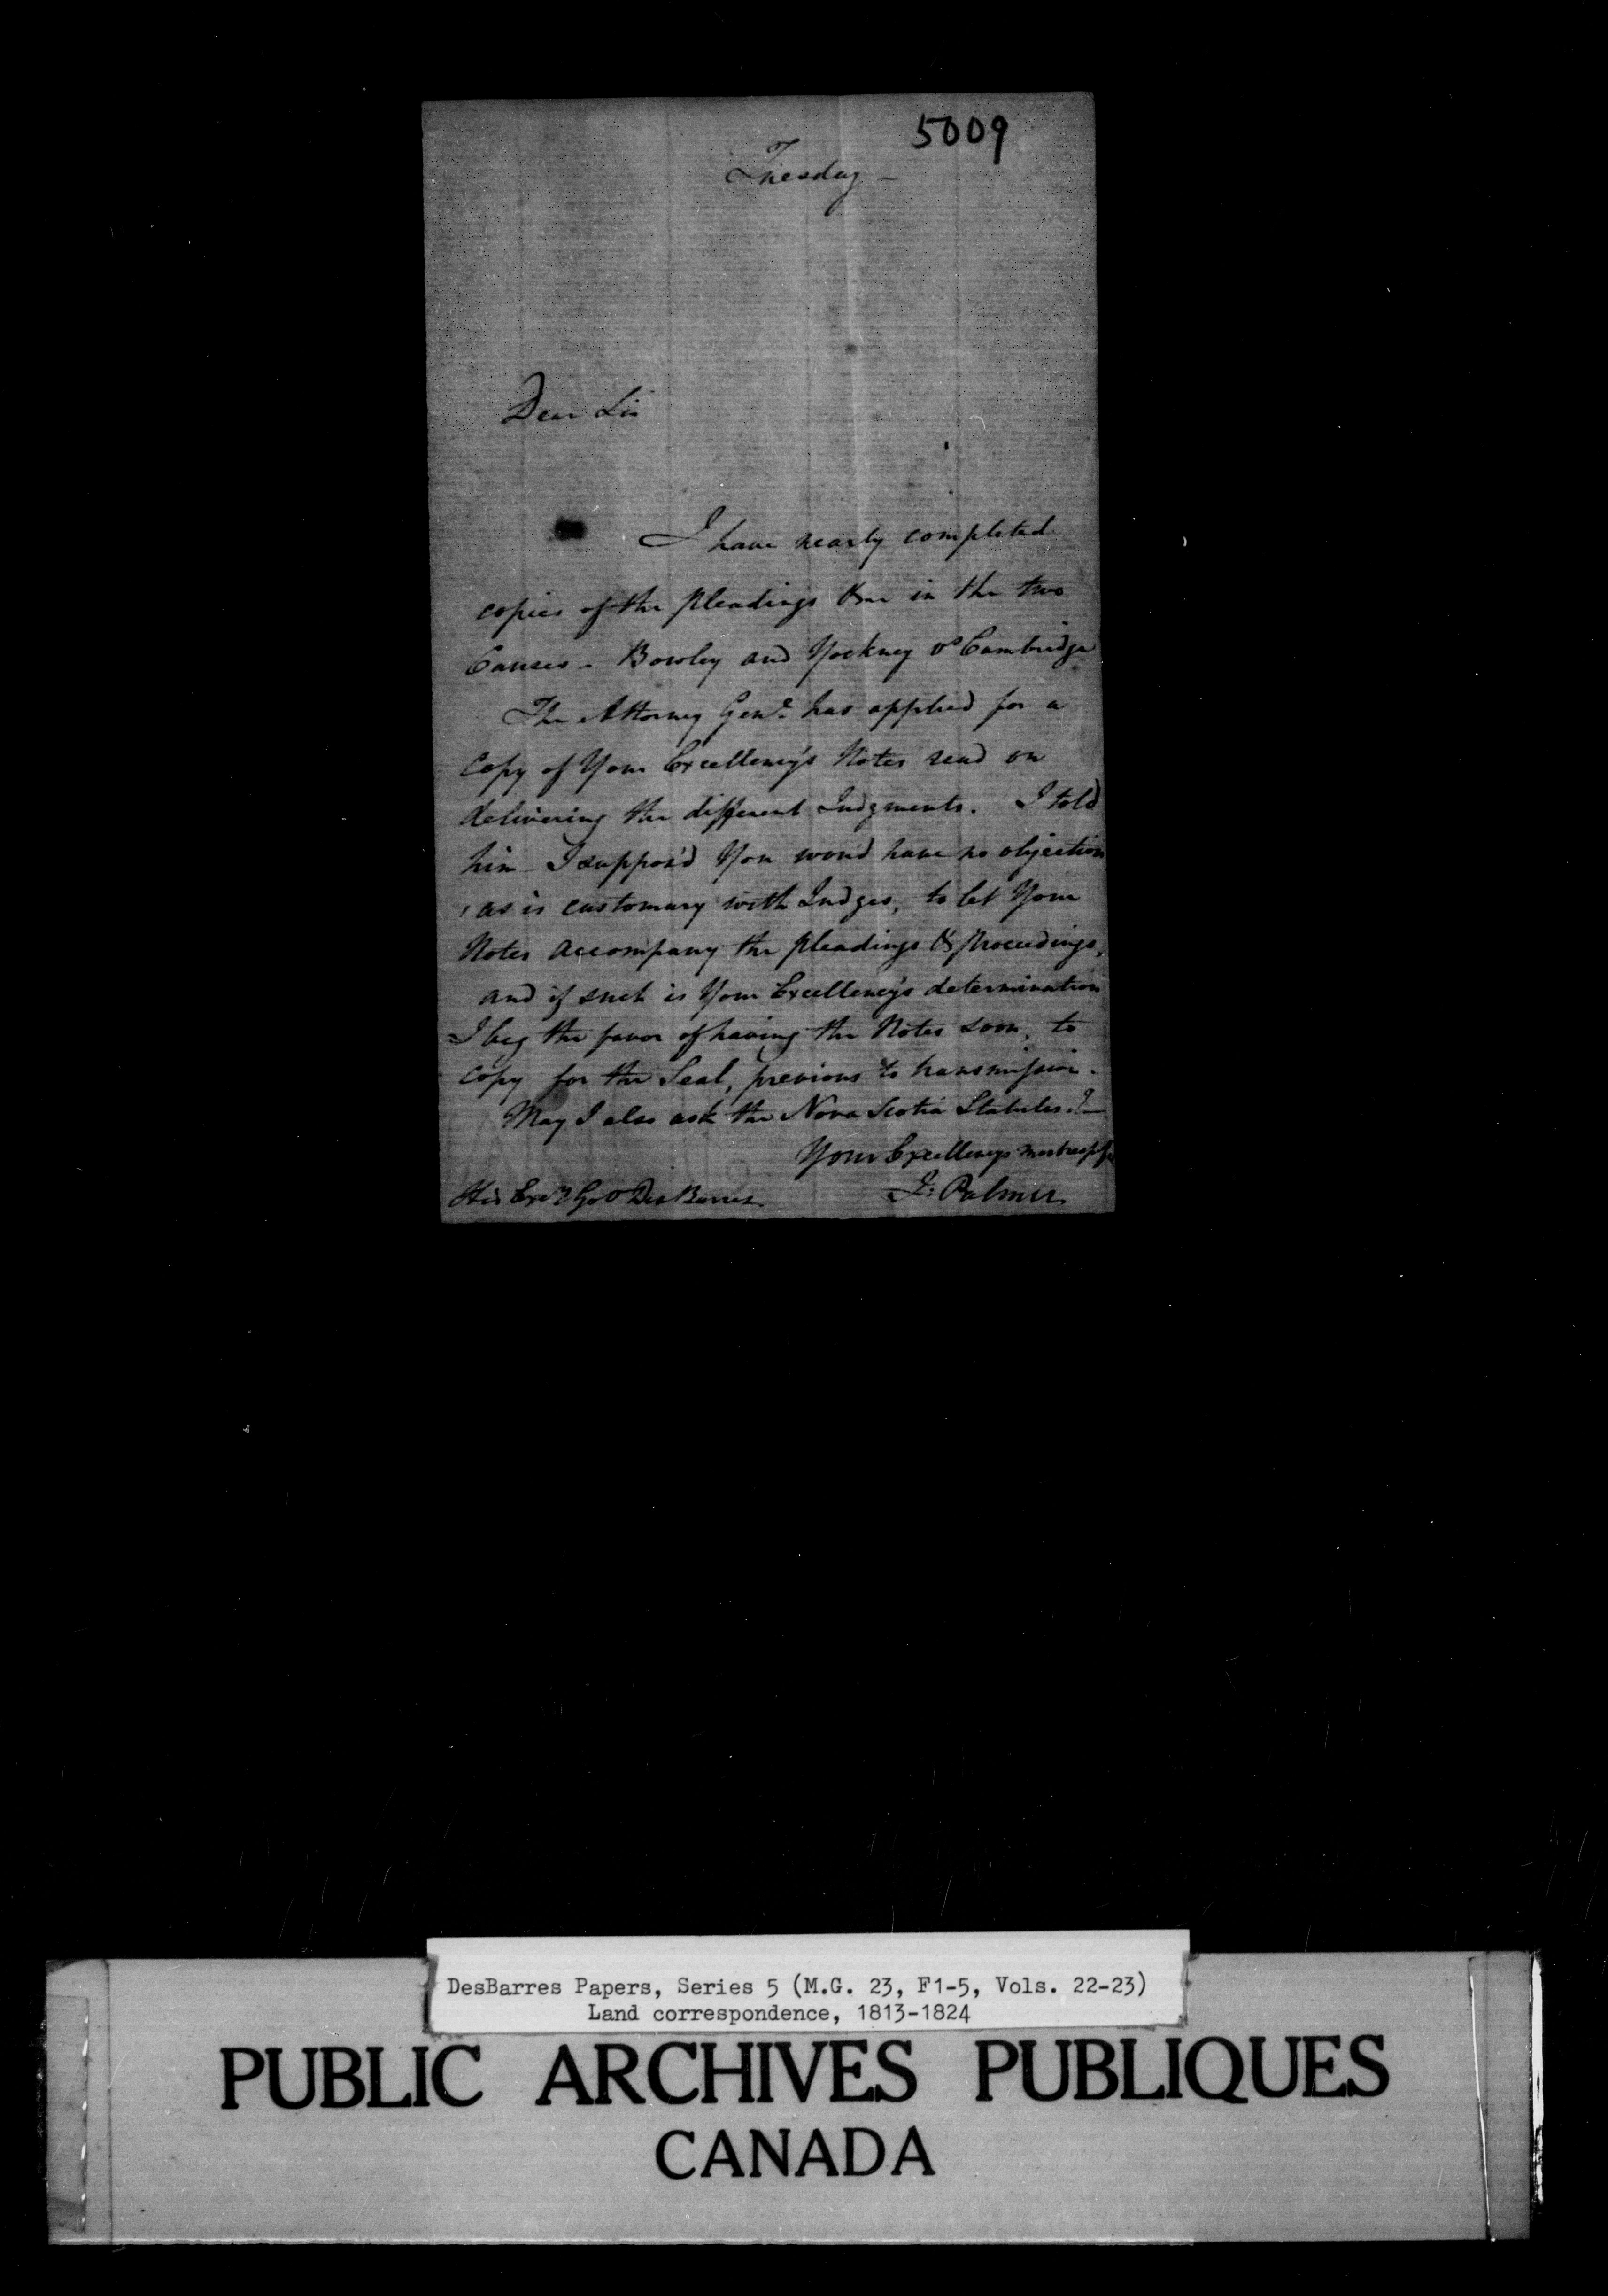 5009
Tuesday -
Dear Sir
I have nearly completed
copies of the pleadings &c in the two
Causes - Bowley and Yockney vs Cambridge
The Attorney Genl. has applied for a
Copy of Your Excellency's Notes read on
delivering the different Judgments. I told
him - I suppos'd You wou'd have no objection
, as is customary with Judges, to let Your
Notes accompany the pleadings & proceedings,
and if such is Your Excellency's determination
I beg the favor of having the Notes soon, to
Copy for the Seal, previous to transmission.
May I also ask the Nova Scotia Statutes?-
Your Excellencys most respf
His Excy Gov DesBarres J: Palmer
DesBarres Papers, Series 5 (M.G. 23, F1-5, Vols. 22-23)
Land correspondence, 1813-1824
PUBLIC ARCHIVES PUBLIQUES
CANADA